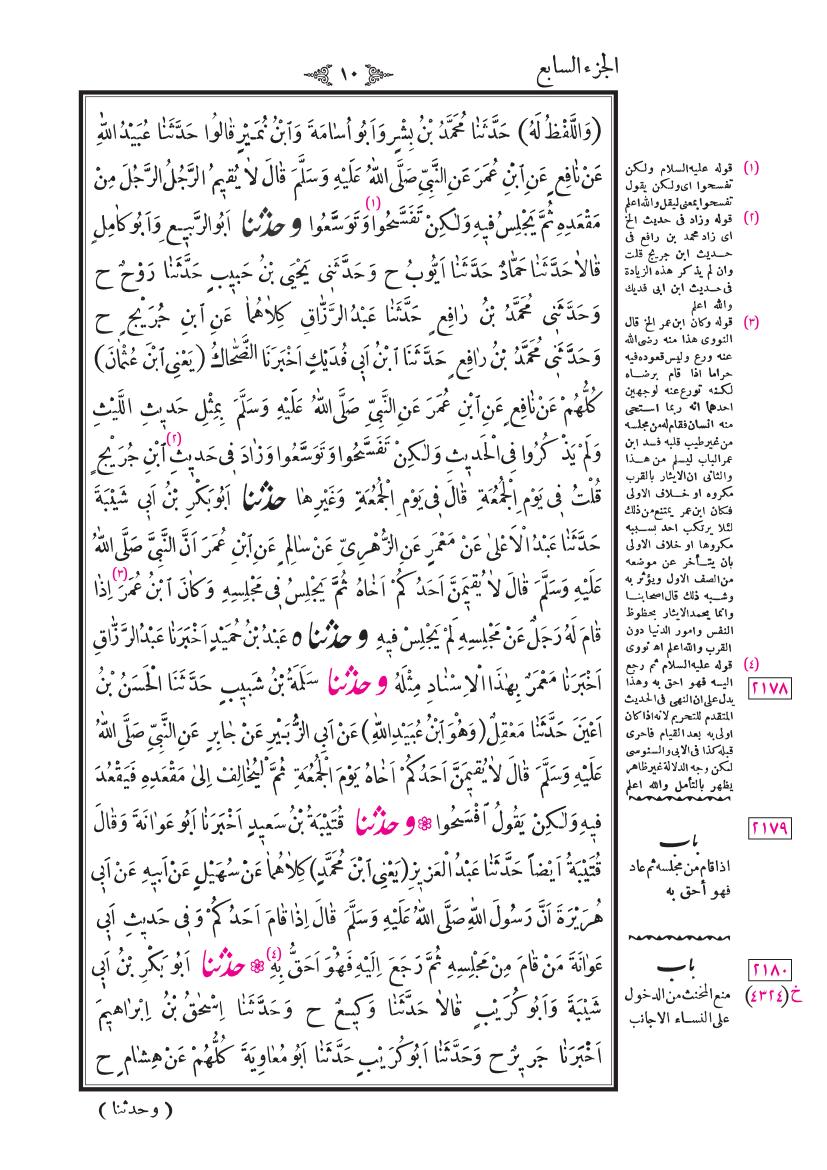 الجزء السابع
١٠
(وَاللَّفْظُ لَهُ) حَدَّثَنَا مُحَمَّدُ بْنُ بِشْرٍ وَاَبُو اُسَامَةَ وَابْنُ نُمَيْرٍ قَالُوا حَدَّثَنَا عُبَيْدُ اللهِ
عَنْ نَافِعٍ عَنِ ابْنِ عُمَرَ عَنِ النَّبِيِّ صَلَّى اللهُ عَلَيْهِ وَسَلَّمَ قَالَ لَا يُقِيمُ الرَّجُلُ الرَّجُلَ مِنْ
مَقْعَدِهِ ثُمَّ يَجْلِسُ فِيهِ وَلَكِنْ تَفَسَّحُوا (١) وَتَوَسَّعُوا وحدثنا اَبُو الرَّبِيعِ وَاَبُو كَامِلٍ
قَالَا حَدَّثَنَا حَمَّادٌ حَدَّثَنَا اَيُّوبُ ح وَحَدَّثَنِى يَحْيَى بْنُ حَبِيبٍ حَدَّثَنَا رَوْحٌ ح
وَحَدَّثَنِى مُحَمَّدُ بْنُ رَافِعٍ حَدَّثَنَا عَبْدُ الرَّزَّاقِ كِلَاهُمَا عَنِ ابْنِ جُرَيْجٍ ح
وَحَدَّثَنِى مُحَمَّدُ بْنُ رَافِعٍ حَدَّثَنَا ابْنُ اَبِى فُدَيْكٍ اَخْبَرَنَا الضَّحَّاكُ (يَعْنِى ابْنَ عُثْمَانَ)
كُلُّهُمْ عَنْ نَافِعٍ عَنِ ابْنِ عُمَرَ عَنِ النَّبِيِّ صَلَّى اللهُ عَلَيْهِ وَسَلَّمَ بِمِثْلِ حَدِيثِ اللَّيْثِ
وَلَمْ يَذْكُرُوا فِى الْحَدِيثِ وَلَكِنْ تَفَسَّحُوا وَتَوَسَّعُوا وَزَادَ فِى حَدِيثِ (٢) ابْنِ جُرَيْجٍ
قُلْتُ فِى يَوْمِ الْجُمُعَةِ قَالَ فِى يَوْمِ الْجُمُعَةِ وَغَيْرِهَا حدثنا اَبُو بَكْرِ بْنُ اَبِى شَيْبَةَ
حَدَّثَنَا عَبْدُ الْاَعْلَى عَنْ مَعْمَرٍ عَنِ الزُّهْرِيِّ عَنْ سَالِمٍ عَنِ ابْنِ عُمَرَ اَنَّ النَّبِيَّ صَلَّى اللهُ
عَلَيْهِ وَسَلَّمَ قَالَ لَا يُقِيمَنَّ اَحَدُكُمْ اَخَاهُ ثُمَّ يَجْلِسُ فِى مَجْلِسِهِ وَكَانَ ابْنُ عُمَرَ (٣) اِذَا
قَامَ لَهُ رَجُلٌ عَنْ مَجْلِسِهِ لَمْ يَجْلِسْ فِيهِ وحدثناه عَبْدُ بْنُ حُمَيْدٍ اَخْبَرَنَا عَبْدُ الرَّزَّاقِ
اَخْبَرَنَا مَعْمَرٌ بِهَذَا الْاِسْنَادِ مِثْلَهُ وحدثنا سَلَمَةُ بْنُ شَبِيبٍ حَدَّثَنَا الْحَسَنُ بْنُ
اَعْيَنَ حَدَّثَنَا مَعْقِلٌ (وَهُوَ ابْنُ عُبَيْدِ اللهِ) عَنْ اَبِى الزُّبَيْرِ عَنْ جَابِرٍ عَنِ النَّبِيِّ صَلَّى اللهُ
عَلَيْهِ وَسَلَّمَ قَالَ لَا يُقِيمَنَّ اَحَدُكُمْ اَخَاهُ يَوْمَ الْجُمُعَةِ ثُمَّ لْيُخَالِفْ اِلَى مَقْعَدِهِ فَيَقْعُدَ
فِيهِ وَلَكِنْ يَقُولُ افْسَحُوا ❁ وحدثنا قُتَيْبَةُ بْنُ سَعِيدٍ اَخْبَرَنَا اَبُو عَوَانَةَ وَقَالَ
قُتَيْبَةُ اَيْضًا حَدَّثَنَا عَبْدُ الْعَزِيزِ (يَعْنِى ابْنَ مُحَمَّدٍ) كِلَاهُمَا عَنْ سُهَيْلٍ عَنْ اَبِيهِ عَنْ اَبِى
هُرَيْرَةَ اَنَّ رَسُولَ اللهِ صَلَّى اللهُ عَلَيْهِ وَسَلَّمَ قَالَ اِذَا قَامَ اَحَدُكُمْ وَفِى حَدِيثِ اَبِى
عَوَانَةَ مَنْ قَامَ مِنْ مَجْلِسِهِ ثُمَّ رَجَعَ اِلَيْهِ فَهُوَ اَحَقُّ بِهِ (٤) ❁ حدثنا اَبُو بَكْرِ بْنُ اَبِى
شَيْبَةَ وَاَبُو كُرَيْبٍ قَالَا حَدَّثَنَا وَكِيعٌ ح وَحَدَّثَنَا اِسْحٰقُ بْنُ اِبْرَاهِيمَ
اَخْبَرَنَا جَرِيرٌ ح وَحَدَّثَنَا اَبُو كُرَيْبٍ حَدَّثَنَا اَبُو مُعَاوِيَةَ كُلُّهُمْ عَنْ هِشَامٍ ح
( وحدثنا )
(١) قوله عليه السلام ولكن
تفسحوا اى ولكن يقول
تفسحوا بمعنى ليقل والله اعلم
(٢) قوله وزاد فى حديث الخ
اى زاد محمد بن رافع فى
حديث ابن جريج قلت
وان لم يذكر هذه الزيادة
فى حديث ابن ابى فديك
والله اعلم
(٣) قوله وكان ابن عمر الخ قال
النووى هذا منه رضى الله
عنه ورع وليس قعوده فيه
حراما اذا قام برضاه
لكنه تورع عنه لوجهين
احدهما انه ربما استحى
منه انسان فقام له من مجلسه
من غير طيب قلبه فسد ابن
عمر الباب ليسلم من هذا
والثانى ان الايثار بالقرب
مكروه او خلاف الاولى
فكان ابن عمر يمتنع من ذلك
لئلا يرتكب احد بسببه
مكروها او خلاف الاولى
بان يتأخر عن موضعه
من الصف الاول ويؤثر به
وشبه ذلك قال اصحابنا
وانما يحمد الايثار بحظوظ
النفس وامور الدنيا دون
القرب والله اعلم اه نووى
(٤) قوله عليه السلام ثم رجع
اليه فهو احق به وهذا
يدل على ان النهى فى الحديث
المتقدم للتحريم لانه اذا كان
اولى به بعد القيام فاحرى
قبله كذا فى الابى والسنوسى
لكن وجه الدلالة غير ظاهر
يظهر بالتأمل والله اعلم
٢١٧٨
٢١٧٩
باب
اذا قام من مجلسه ثم عاد
فهو أحق به
٢١٨٠
باب
خ (٤٣٢٤)
منع المخنث من الدخول
على النساء الاجانب